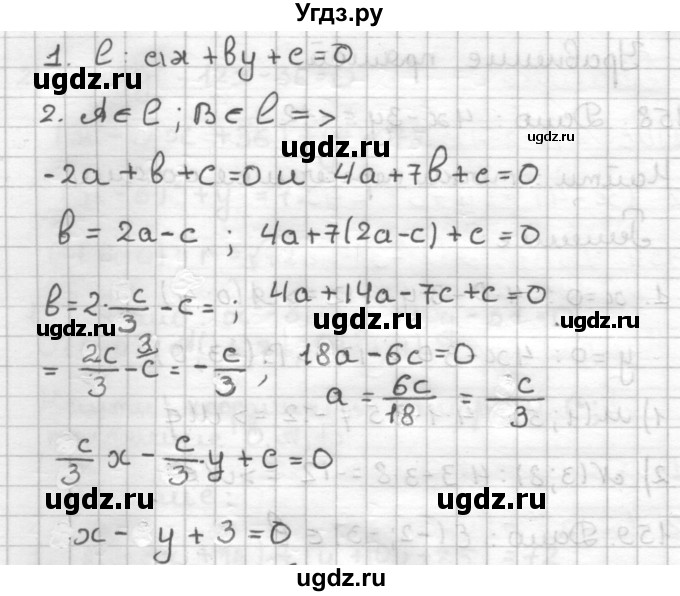 Угдз.ру
1. l: ax + by + c = 0
ugdz.ru
2. A ∈ l ; B ∈ l =>
ugdz.ru
ugdz.ru
-2a + b + c = 0 и 4a + 7b + c = 0
b = 2a - c ; 4a + 7(2a - c) + c = 0
b = 2·c/3 - c = ; 4a + 14a - 7c + c = 0
ugdz.ru
ugdz.ru
ugdz.ru
= 2c/3 - c^3 = - c/3 ; 18a - 6c = 0
a = 6c/18 = c/3
c/3 x - c/3·y + c = 0
ugdz.ru
ugdz.ru
x - y + 3 = 0
ugdz.ru
ugdz.ru